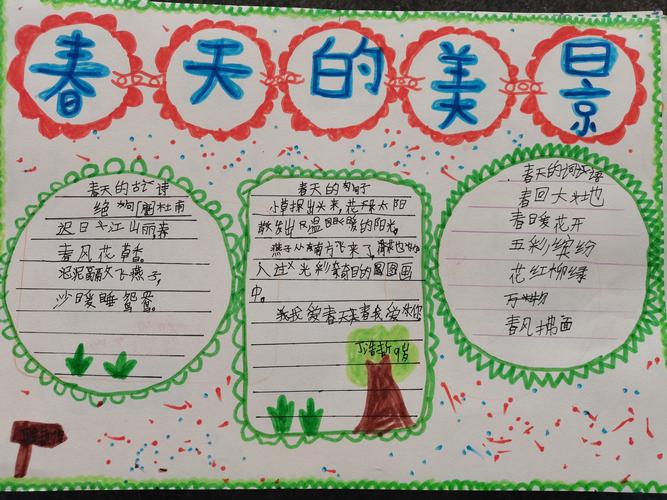 春天的美景
春天的古诗
绝句 杜甫
迟日江山丽
春风花草香。
泥融飞燕子,
沙暖睡鸳鸯。
春天的句子
小草探出头来,花 太阳
散发出 温暖的阳光。
燕子从南方飞来了,
入 光彩 目的 图画
中。
我 爱春天 春 我爱
丁浩 9岁
春天的词语
春回大地
春暖花开
五彩缤纷
花红柳绿
万物
春风拂面